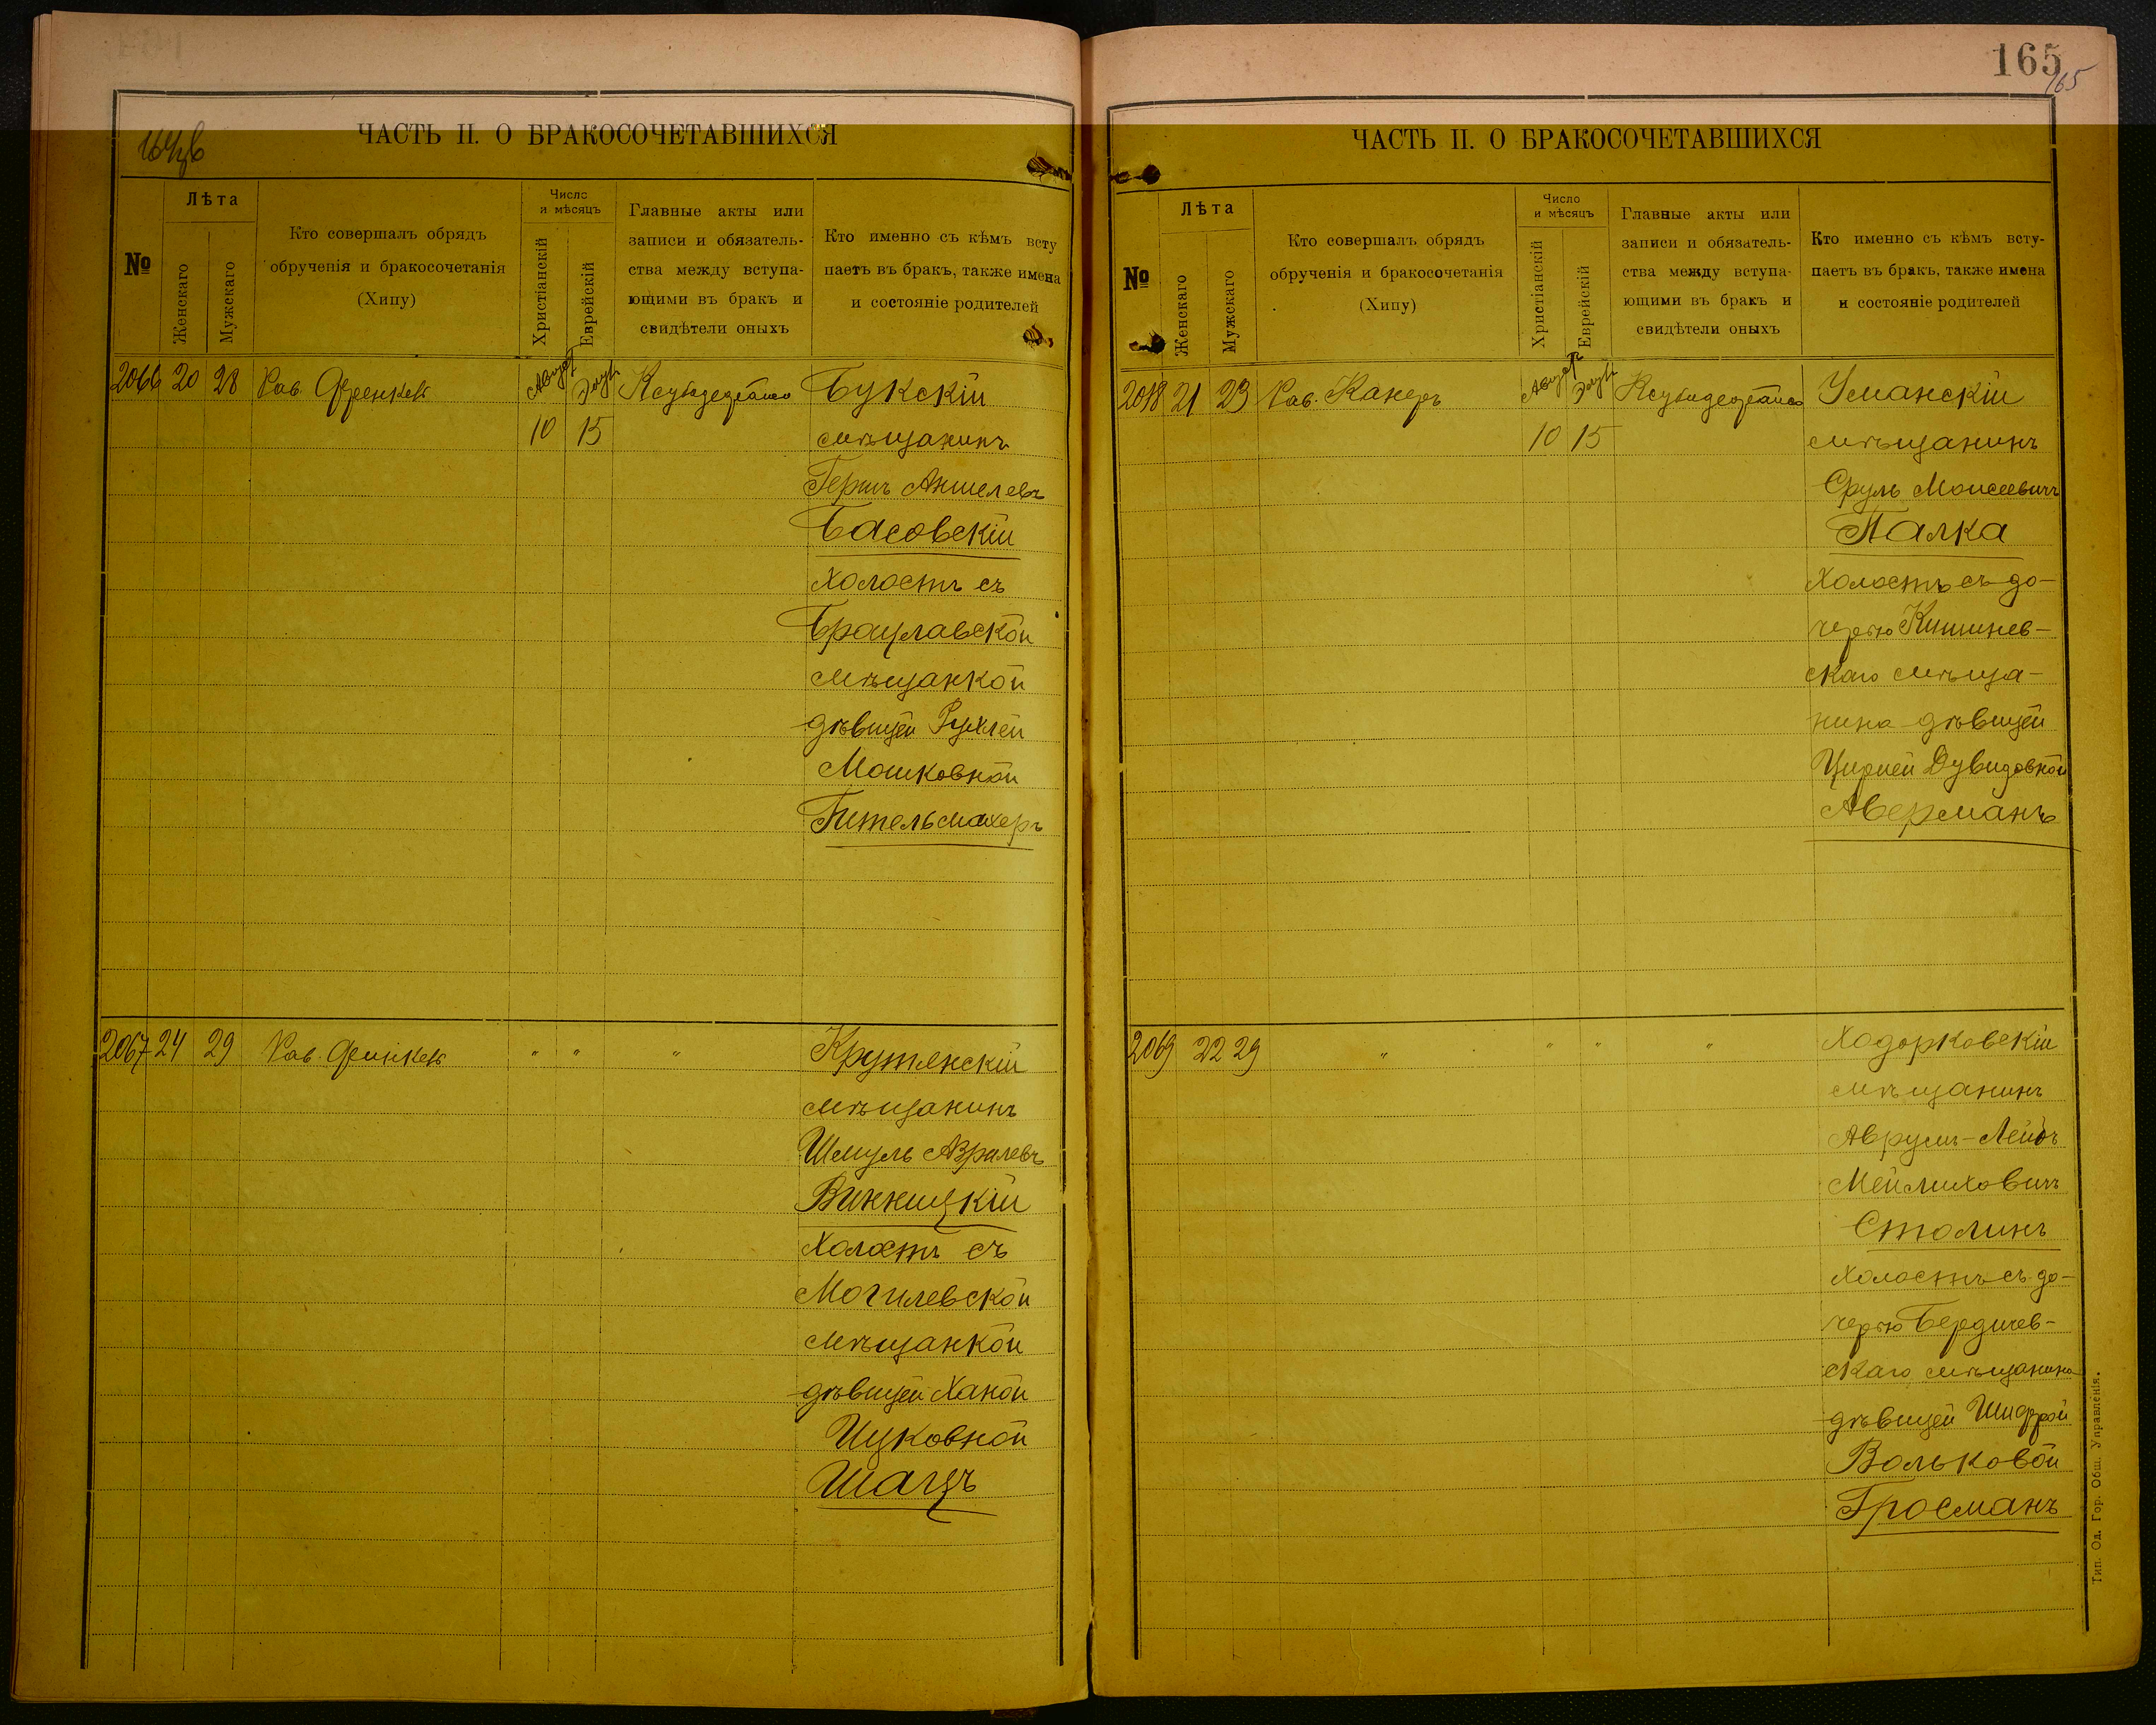 165
165
ЧАСТЬ II. О БРАКОСОЧЕТАВШИХСЯ
№
Лѣта
Женскаго
Мужскаго
Кто совершалъ обрядъ
обрученія и бракосочетанія
(Хипу)
Число
и мѣсяцъ
Христіанскій
Еврейскій
Главные акты или
записи и обязатель-
ства между вступа-
ющими въ бракъ и
свидѣтели оныхъ
Кто именно съ кѣмъ всту
паетъ въ бракъ, также имена
и состояніе родителей
2066 20 28 Рав. Август
10 15
Букскій
мѣщанинъ
Гершъ Аншелевъ
Басовскій
холостъ съ
Брацлавской
мѣщанкой
дѣвицей Рухлей
Мошковной
Гительмахеръ
2067 24 29 Рав. " " "
Крутянскій
мѣщанинъ
Шмуль Азралевъ
Винницкій
холостъ съ
Могилевской
мѣщанкой
дѣвицей Ханой
Ицковной
Шацъ
ЧАСТЬ II. О БРАКОСОЧЕТАВШИХСЯ
№
Лѣта
Женскаго
Мужскаго
Кто совершалъ обрядъ
обрученія и бракосочетанія
(Хипу)
Число
и мѣсяцъ
Христіанскій
Еврейскій
Главные акты или
записи и обязатель-
ства между вступа-
ющими въ бракъ и
свидѣтели оныхъ
Кто именно съ кѣмъ всту-
паетъ въ бракъ, также имена
и состояніе родителей
21 23 Рав. Канеръ Август
10 15
Уманскій
мѣщанинъ
Сруль Моисеевичъ
Палка
холостъ съ до-
черью Кишинев-
скаго мѣща-
нина дѣвицей
Цирлей Дувидовной
Аверманъ
2069 22 29 " " " "
Ходорковскій
мѣщанинъ
Аврумъ-Лейбъ
Мейлиховичъ
Столинъ
холостъ съ до-
черью Бердичев-
скаго мѣщанина
дѣвицей Шифрой
Вольковой
Гросманъ
Тип. Од. Гор. Общ. Управленія.